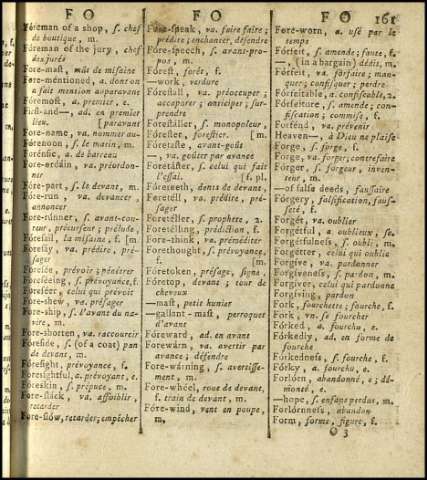 F O
F O
F O
161
Fóreman of a shop, ſ. chef
de boutique, m.
Fóreman of the jury, chef
des jurés
Fore-maſt, mât de miſaine
Fore-mentioned, a. dont on
a fait mention auparavant
Fóremoſt, a. premier, e.
—, ad. en premier
lieu. [paravant
Fore-name, va. nommer au-
Fórenoon, ſ. matin, m.
Forénſic, a. de barreau
Fore-ordáin, va. préordon-
nér
Fóre-part, ſ. le devant, m.
Fóre-run, va. devancer,
annoncer
Fore-rúnner, ſ. avant-cou-
reur, précurſeur; prélude,
Fórefail, la miſaine, f. [m.
Foreſáy, va. prédire, pré-
ſager
Foreſée, prévoir; pénétrer
Foreſéeing, ſ. prévoyance, f.
Foreſéer, celui qui prévoit
Fore-shew, va. préſager
Fore-ship, ſ. l'avant du na-
vire, m.
Fore-shorten, va. raccourcir
Foreſide, ſ. (of a coat) pan
de devant, m.
Fóreſight, prévoyance, f.
Foreſightful, a. prévoyant, e.
Fóreskin, ſ. prépuce, m.
Fore-ſláck, va. affoiblir,
retarder
Fore-ſlów, retarder; empêcher
Fore-ſpeak, va. faire faire;
prédire; enchanter, défendre
Fore-ſpeech, ſ. avant-pro-
pos, m.
Fóreſt, forêt, f.
—work, verdure
Foreſtall, va. préoccuper;
accaparer; anticiper; ſur-
prendre
Foreſtáller, ſ. monopoleur,
Fóreſter, foreſtier. [m.
Foretaſte, avant-goût
—, va. goûter par avance
Foretáſter, ſ. celui qui fait
l'eſſai. [f. pl.
Fóreteeth, dents de devant,
Foretéll, va. prédire, pré-
ſager
Foretéller, ſ. prophète, 2.
Foretélling, prédiction, f.
Fore-think, va. préméditer
Forethought, ſ. prévoyance,
f. [m.
Fóretoken, préſage, ſigne,
Fóretop, devant; tour de
cheveux
—maſt, petit hunier
—gallant-maſt, perroquet
d'avant
Foreward, ad. en avant
Forewárn, va. avertir par
avance; défendre
Fore-wárning, ſ. avertiſſe-
ment, m.
Fore-whéel, roue de devant,
f. train de devant, m.
Fore-wind, vent en poupe,
m.
Fore-worn, a. uſé par le
temps
Fórfeit, ſ. amende; faute, f.
—, (in a bargain) dédit, m.
Fórfeit, va. forfaire; man-
quer; confiſquer; perdre
Fórfeitable, a. confiſcable, 2.
Fórfeiture, ſ. amende; con-
fiſcation; commiſe, f.
Forfénd, va. prévenir
Heaven—, à Dieu ne plaiſe
Forge, ſ. forge, f.
Forge, va. forger; contrefaire
Fórger, ſ. forgeur, inven-
teur, m.
—of falſe deeds, fauſſaire
Fórgery, falſification, fauſ-
ſeté, f.
Forgét, va. oublier
Forgétful, a. oublieux, ſe.
Forgétfulneſs, ſ. oubli, m.
Forgétter, celui qui oublie
Forgíve, va. pardonner
Forgíveneſs, ſ. pardon, m.
Forgíver, celui qui pardonne
Forgíving, pardon
Fork, fourchette; fourche, f.
Fork, vn. ſe fourcher
Fórked, a. fourchu, e.
Fórkedly, ad. en forme de
fourche
Fórkedneſs, ſ. fourche, f.
Fórky, a. fourchu, e.
Forlórn, abandonné, e; dé-
moné, e.
—hope, ſ. enfans perdus, m.
Forlórnneſs, abandon
Form, forme, figure, f.
O 3